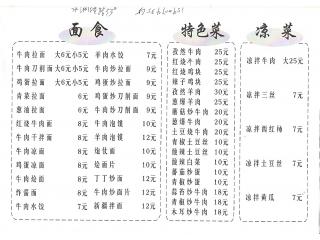 面食
牛肉拉面 大6元小5元
牛肉刀削面 大6元小5元
鸡蛋拉面 大6元小5元
青菜拉面 6元
葱油拉面 6元
红烧牛肉面 8元
牛肉干拌面 8元
牛肉凉面 8元
鸡蛋凉面 8元
牛肉烩面 8元
炸酱面 8元
牛肉水饺 7元
羊肉水饺 7元
牛肉炒拉面 9元
鸡蛋炒拉面 9元
鸡蛋炒刀削面 9元
牛肉炒刀削面 9元
牛肉泡馍 10元
羊肉泡馍 12元
炮仗面 10元
烩面片 10元
丁丁炒面 12元
牛肉炒面片 12元
新疆拌面 12元
特色菜
孜然牛肉 25元
红烧牛肉 25元
辣子鸡块 25元
辣子鸡丁 25元
孜然羊肉 30元
葱爆羊肉 30元
蘑菇炒牛肉 20元
葱爆牛肉 20元
土豆烧牛肉 20元
青椒土豆丝 10元
酸辣土豆丝 10元
酸辣白菜 10元
番茄炒蛋 10元
青椒炒蛋 10元
蒜苔炒牛肉 18元
青椒炒牛肉 18元
木耳炒牛肉 18元
凉菜
凉拌牛肉 大25元
凉拌三丝 7元
凉拌西红柿 7元
凉拌土豆丝 7元
凉拌黄瓜 7元